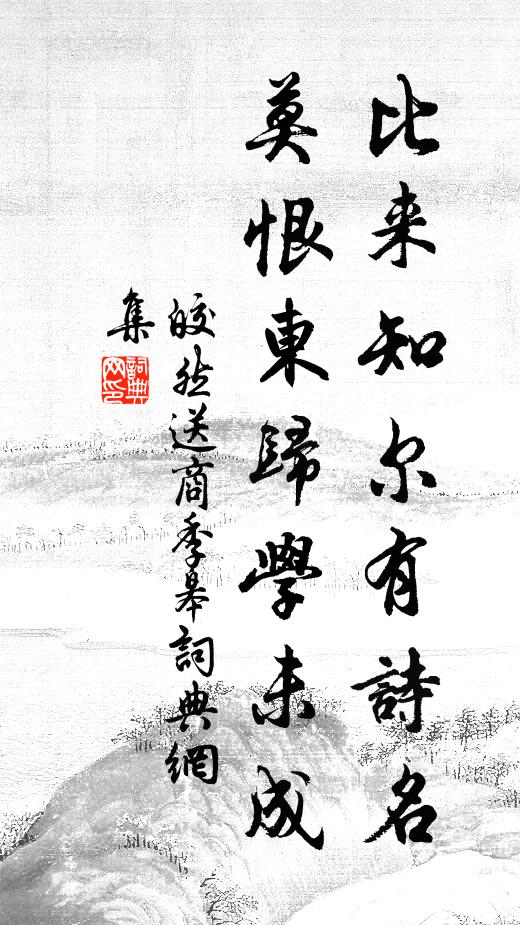 比来知尔有詩名
莫恨東歸學未成
皎然送商季皋詞典網
集
詞典网印